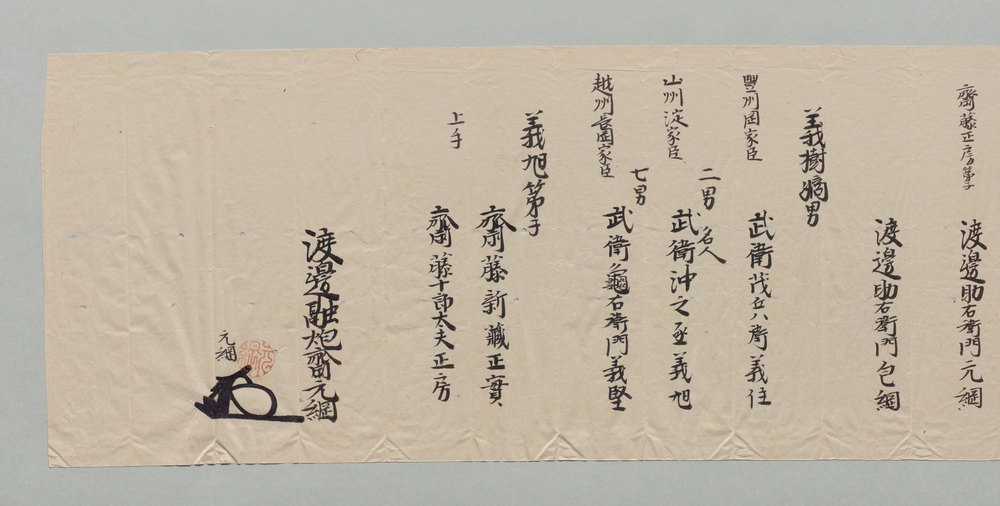 齋藤正房第子
渡邊助右衛門元綱
渡邊助右衛門包綱
義樹嫡男
豐州岡家臣
武衛茂兵衛義住
二男
名人
山州淀家臣
武衛沖之丞義旭
七男
越州長岡家臣
武衛龜右衛門義堅
義旭第子
齋藤新藏正實
上手
齋藤十郎太夫正房
渡邊融炮齋元綱
元綱